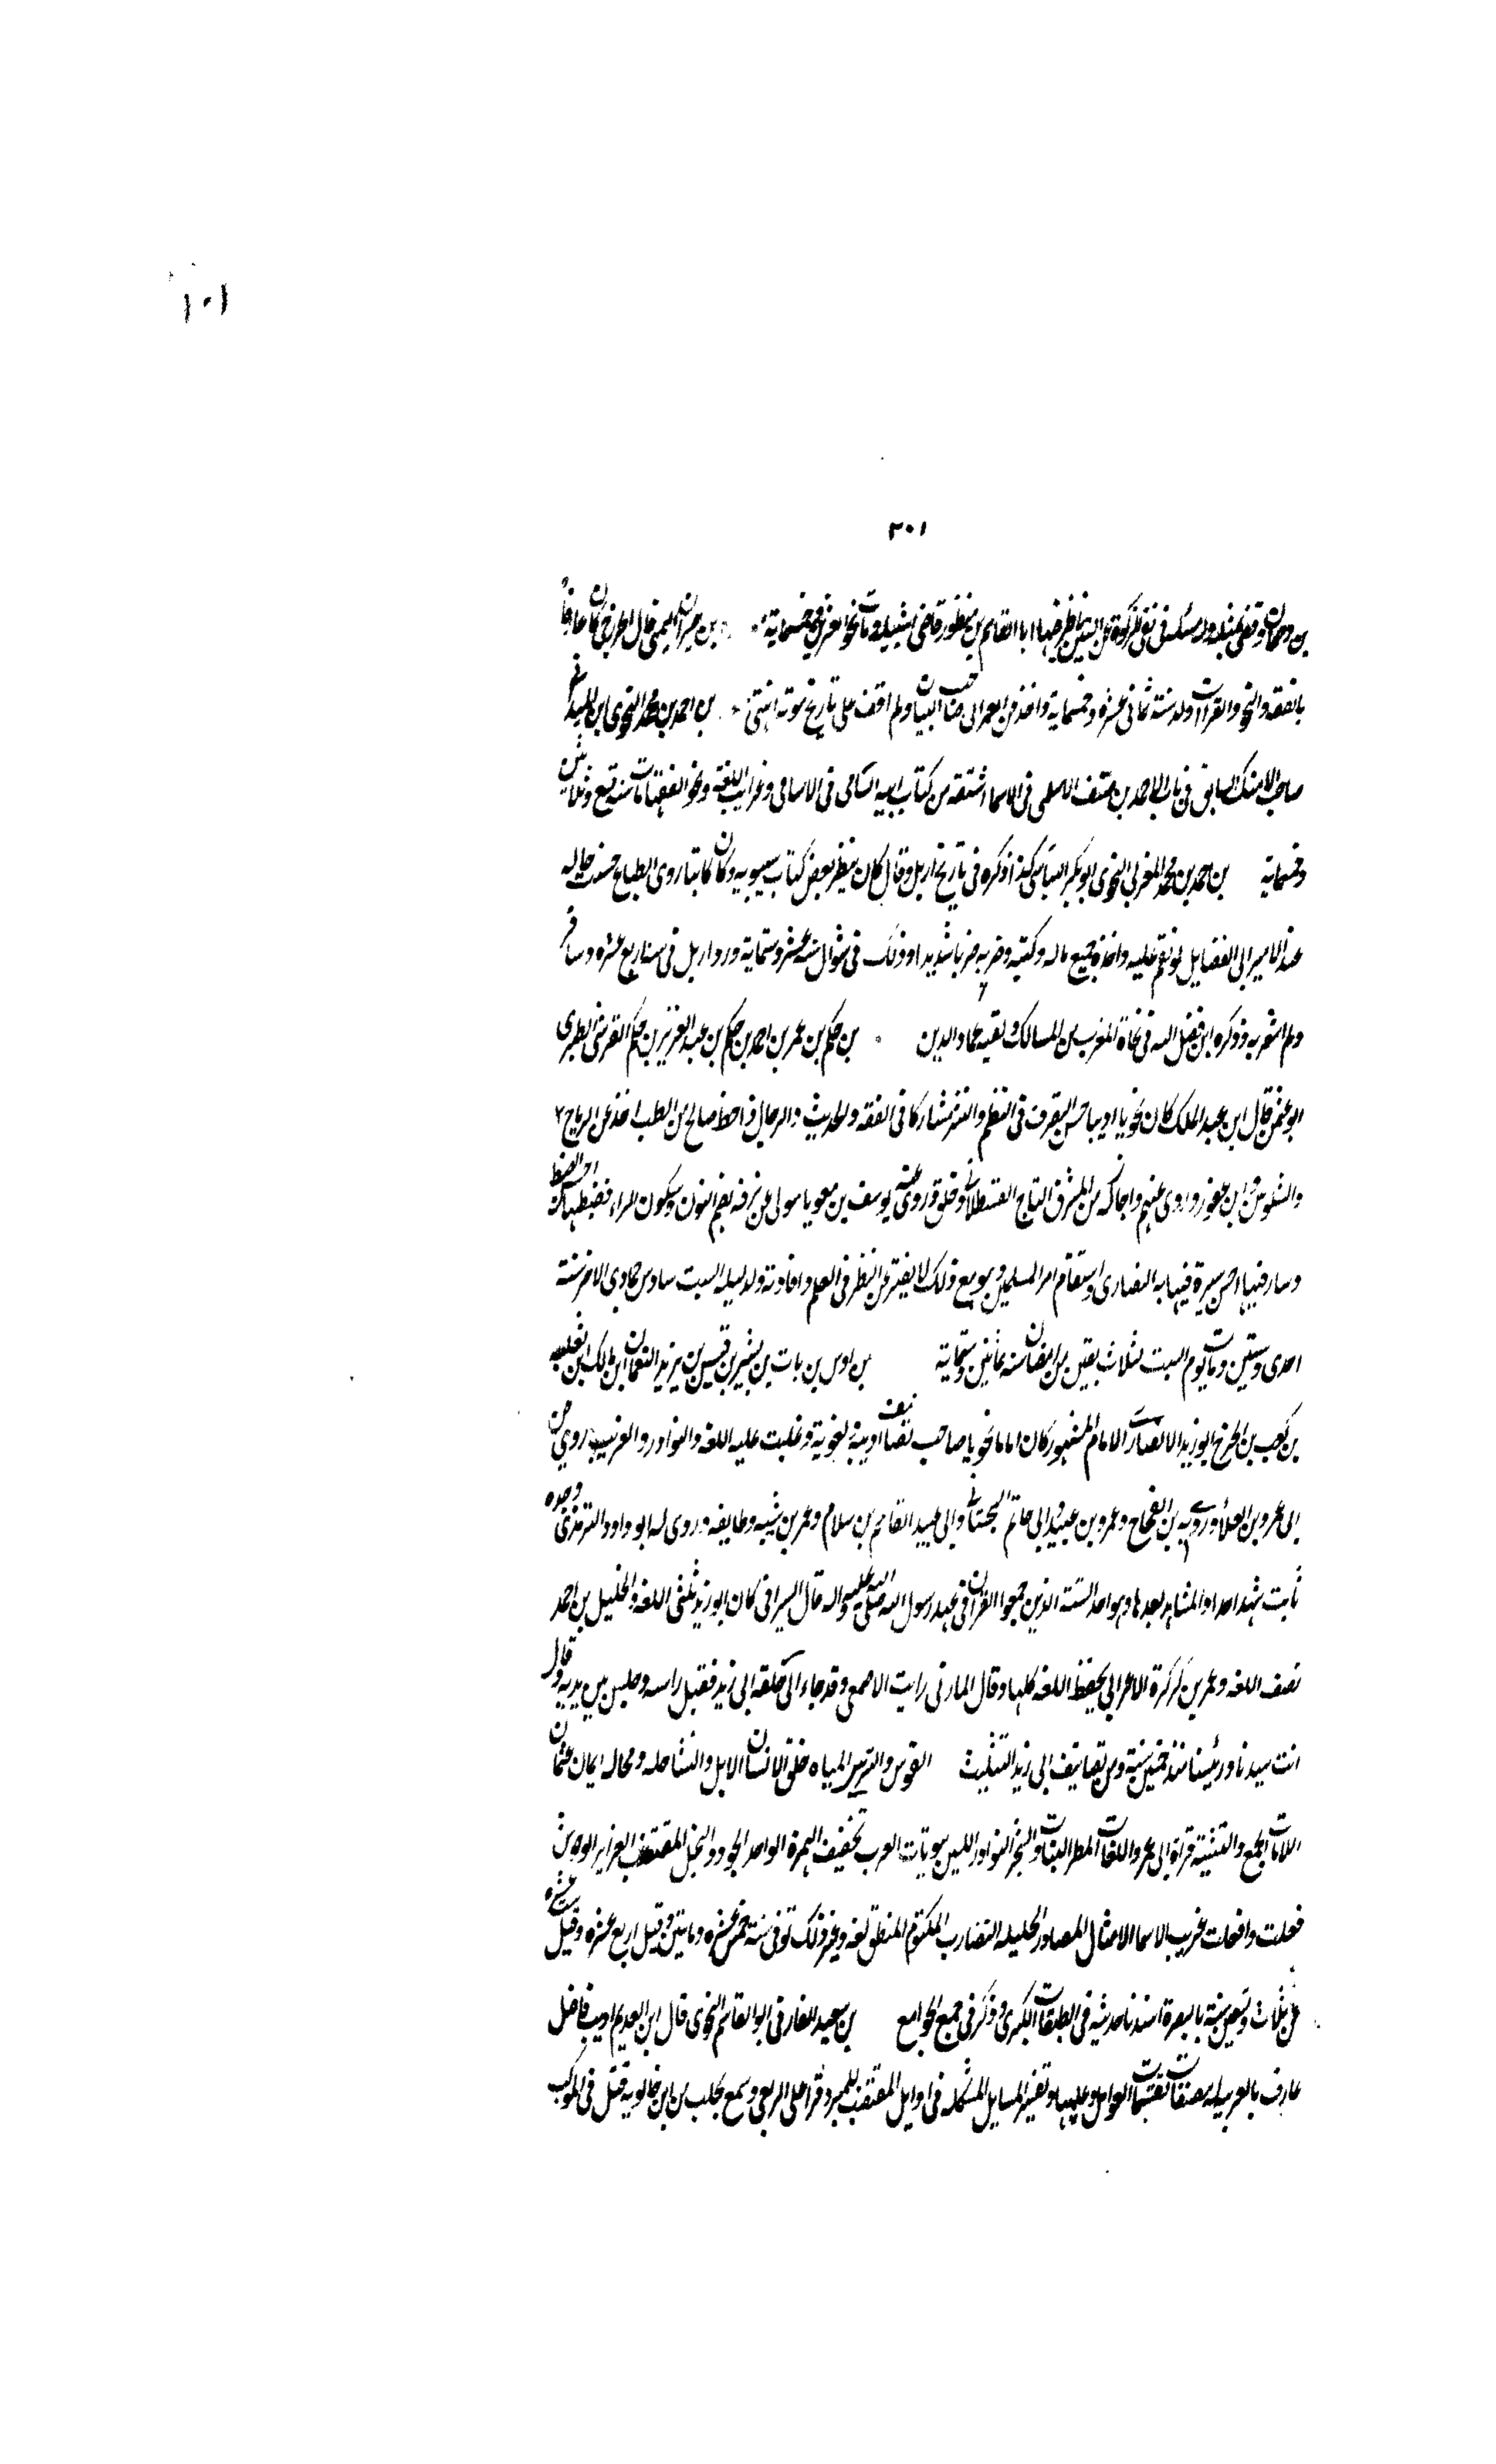 ١٠١
٣٠١
بن وقفى بلده وله مسئلة فى نفى الزكوة عن التين ناظر فيها ابا القاسم بن منظور قاضى اشبيلية ومات نحو العشر وخمسماية بن اليمنى قال الخزرجى كان عارفاً
بالفقه والنحو والقراآت ولد سنة ثمانى عشره وخمسماية واخذ عن العمرانى صاحب البيان ولم اقف على تاريخ موته انتهى بن احمد بن محمد النحوى ابن الميدانى
صاحب الامثال السابق فى باب الاحمدين صنف الاسمى فى الاسما اشتقه من كتاب ابيه السامى فى الاسامى وغرايب اللغة ونحو الفقها مات سنة تسع وثلاثين
وخمسماية بن احمد بن محمد المغربى النحوى ابو بكر البياسى كذا ذكره فى تاريخ اربل وقال كان ينظر بعض كتاب سيبويه وكان كاتبا روى الطباع حسنت حاله
عند الامير ابى الفضايل لؤلؤ ثم نقم عليه واخذ جميع ماله وكتبه وضربه ضربا شديدا وذلك فى شوال سنة عشر وستماية ورد اربل فى سنة اربع عشره وسافر
ولم اشعر به وذكره ابن فضل الله فى نحاة المغرب من المسالك ولقبه عماد الدين بن حكم بن عمر بن احمد بن حكم بن عبد العزيز بن حكم القرشى الطبرى
ابو عثمن قال ابن عبد الملك كان نحويا اديبا حسن التصرف فى النظم والنثر مشاركا فى الفقه والحديث والرجال ذا حظ صالح من الطب اخذ عن الدباج
والشلوبين وابن عصفور وروى عنهم واجاز له من المشرق التاج القسطلانى وخلق وروى عنه يوسف بن مغويا مولى بضم النون وسكون الراء فضبطها احسن الضبط
وسار فيها احسن سيرة فهابه النصارى واستقام امر المسلمين وهو مع ذلك لا يفتر عن النظر فى العلم وافادته ولد ليلة السبت سادس جمادى الاخر سنة
احدى وستين ومات يوم السبت لثلاث بقين من رمضان سنة ثمانين وستماية بن اوس بن ثابت بن بشير بن قيس بن يزيد النعمان ابن مالك ابن ثعلبه
بن كعب بن الخزرج ابو زيد الانصارى الامام المشهور كان اماما نحويا صاحب تصانيف ادبية لغوية وغلبت عليه اللغة والنوادر والغريب روى عن
ابى عمرو بن العلا ورؤبه بن العجاج وعمرو بن عبيد وابى حاتم السجستانى وابى عبيد القاسم بن سلام وعمر بن شبه وطايفه وروى له ابو داود الترمذى وجده
ثابت شهد احدا والمشاهد بعدها وهو احد الستة الذين جمعوا القران فى عهد رسول الله صلى الله عليه واله قال السيرافى كان ابو زيد ثلثى اللغة والخليل بن احمد
نصف اللغة وعمر بن كركرة الاعرابى يحفظ اللغة كلها وقال المازنى رايت الاصمعى وقد جاء الى حلقة ابى زيد فقبل راسه وجلس بين يديه وقال
انت سيدنا ورئيسنا منذ خمسين سنة ومن تصانيف ابى زيد التثليث القوس والترس المياه خلق الانسان الابل والشا حيله ومحاله ايمان عثمان
اللامات الجمع والتثنية قراة ابى عمرو اللغات المطر النبات والشجر النوادر اللبن بيوتات العرب تخفيف الهمزة الواحد الجود والبخل المقتضب الغرايز الوحوش
فعلت وافعلت غريب الاسما الامثال المصادر الحليله التضارب المكتوم المنطق لغه وغير ذلك توفى سنة خمس عشره وماتين وقيل اربع عشره وقيل ست عشره
عن ثلاث وتسعين سنة بالبصرة اسندنا حديثه فى الطبقات الكبرى وذكر فى جمع الجوامع بن سعيد الفارقى ابو القاسم النحوى قال ابن العديم اديب فاضل
عارف بالعربيه له مصنفات تقسيمات العوامل وعللها وتفسير المسايل المشكله فى اوايل المقتضب للمبرد قرا على الربعى وسمع بحلب من ابن خالويه قتل فى الموكب